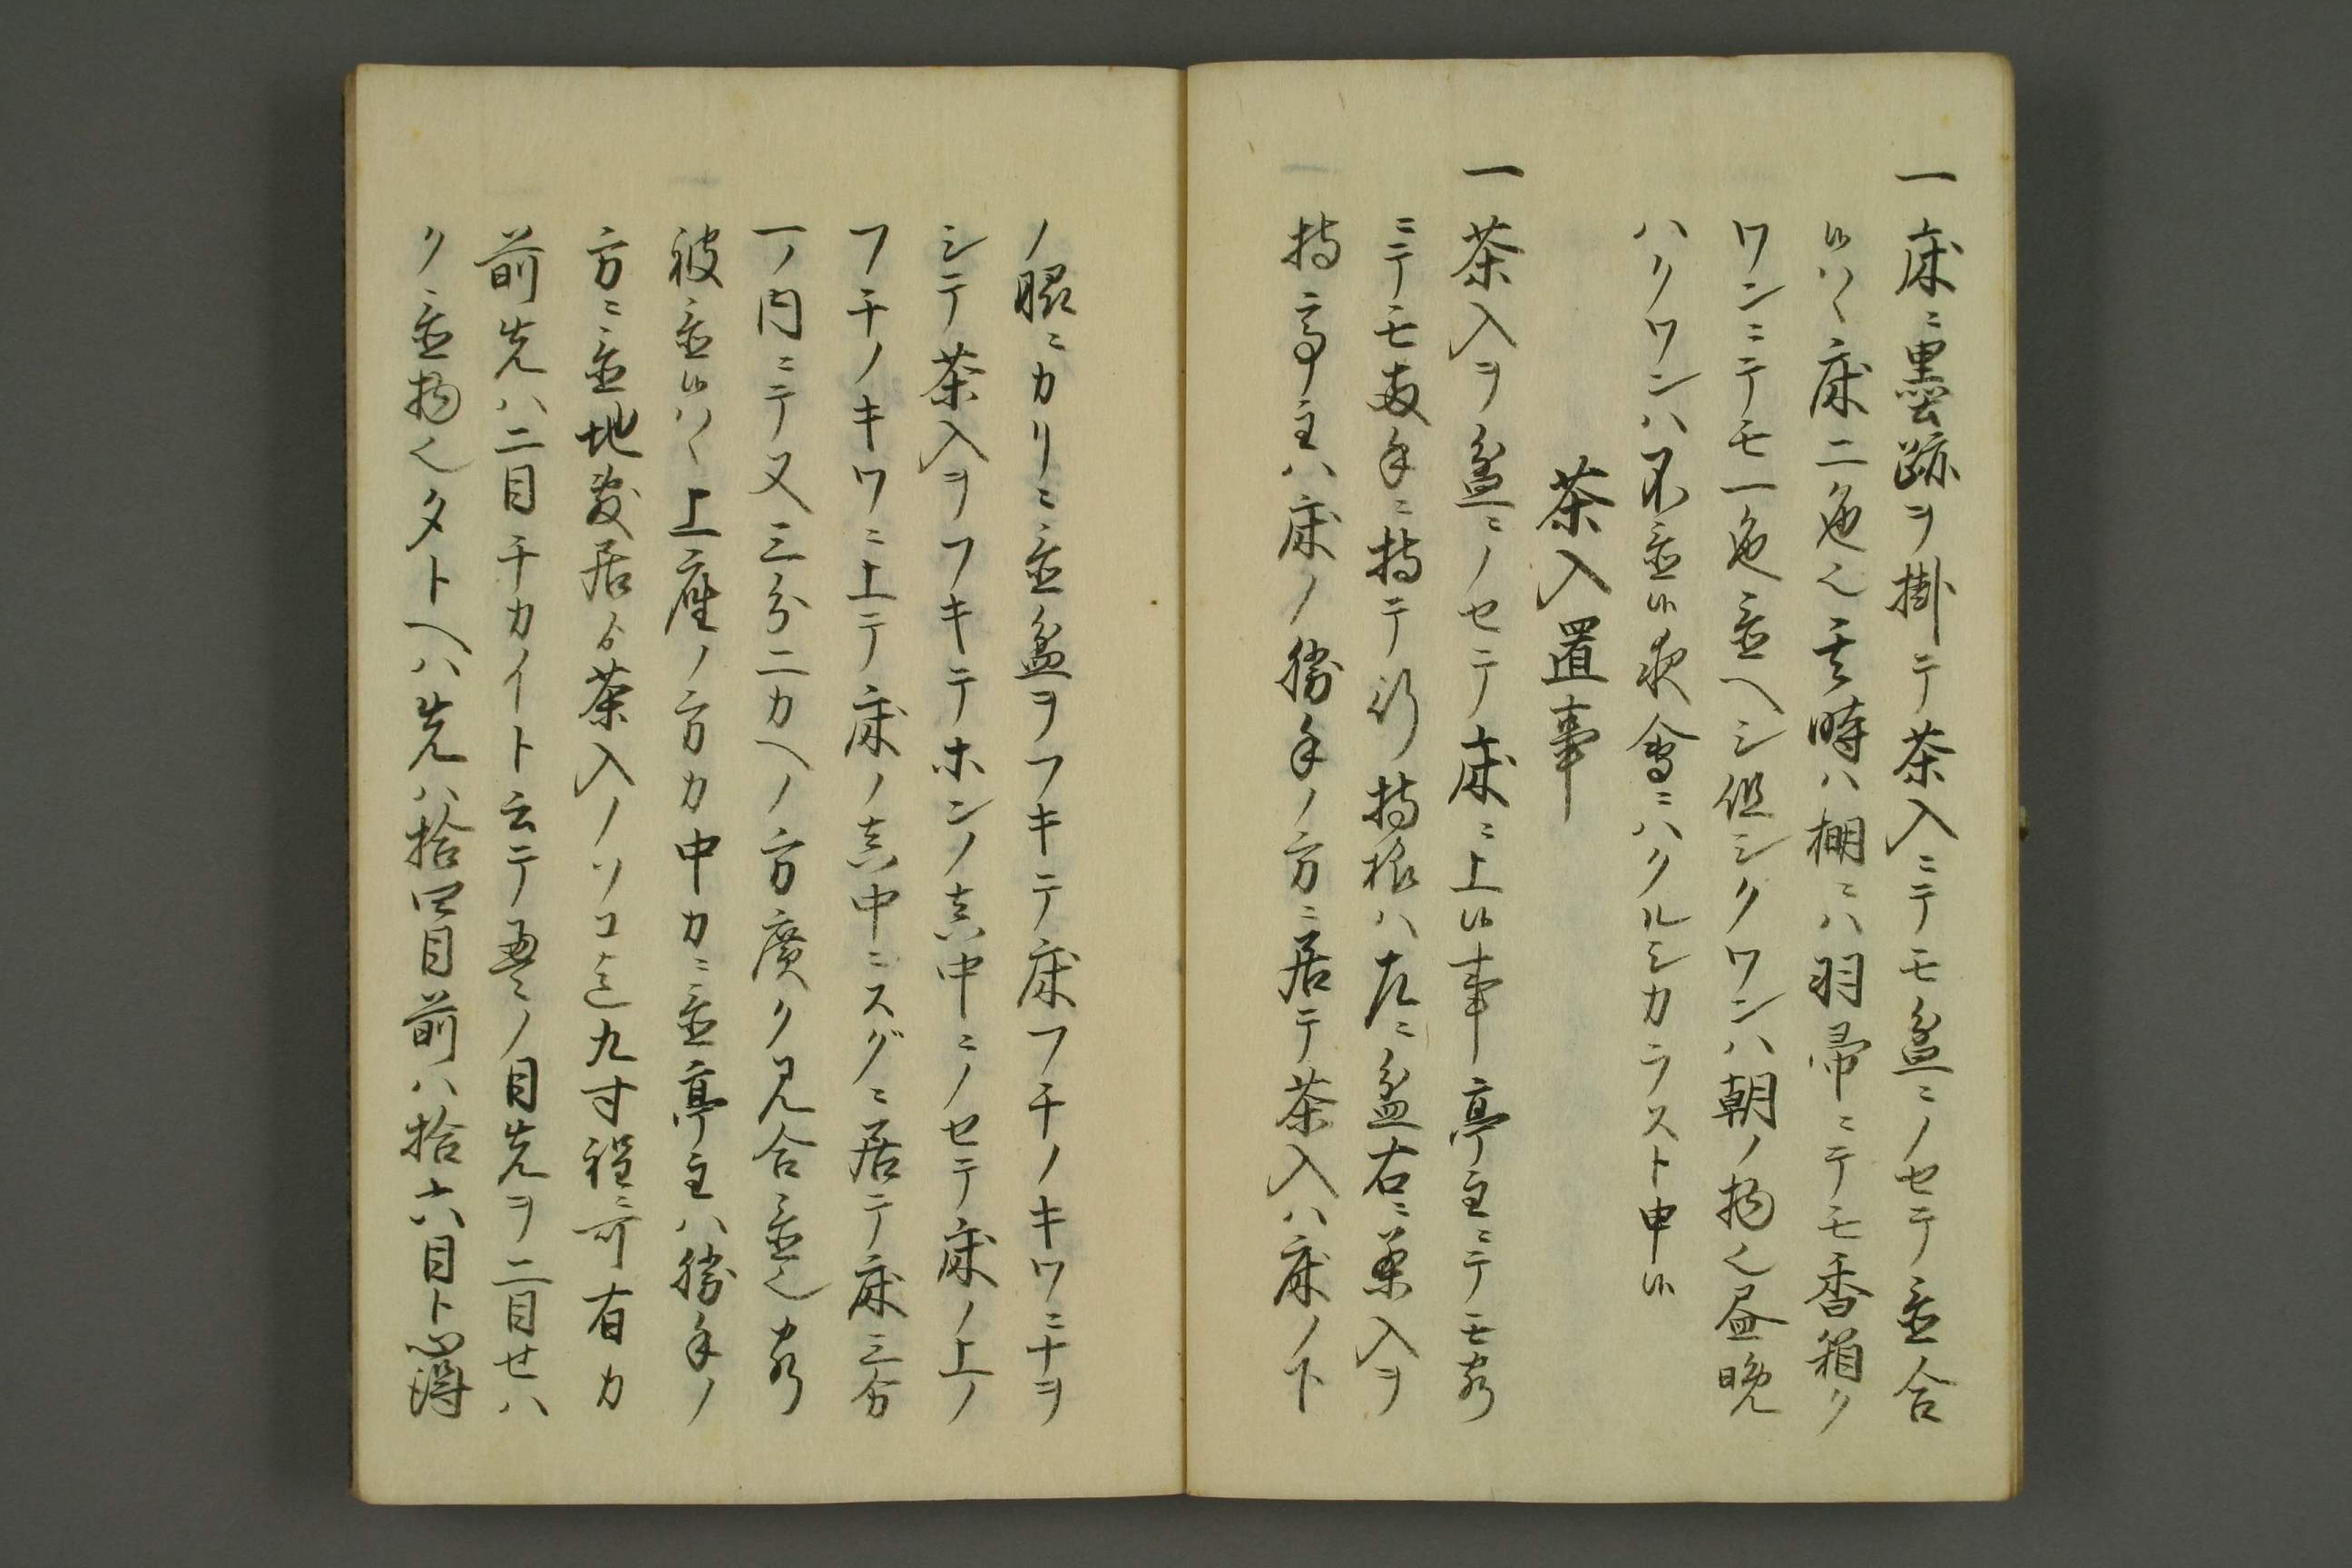 一床ニ墨跡ヲ掛テ茶入ニテモ盆ニノセテ置合
候ハヽ床二色也其時ハ棚ニハ羽帚ニテモ香箱ク
ワンニテモ一色置ヘシ但シクワンハ朝ノ物也昼晩
ハクワンハ不置候夜会ニハクルシカラスト申候
茶入置事
一茶入ヲ盆ニノセテ床ニ上候事亭主ニテモ客
ニテモ両手ニ持テ行持様ハ左ニ盆右ニ茶入ヲ
持亭主ハ床ノ勝手ノ方ニ居テ茶入ハ床ノ下
ノ畳ニカリニ置盆ヲフキテ床フチノキワニナヲ
シテ茶入ヲフキテホンノ真中ニノセテ床ノ上ノ
フチノキワニ上テ床ノ真中ニスグニ居テ床三分
一ノ内ニテ又三分二カヘノ方廣ク見合置也客
被置候ハヽ上座ノ方カ中カニ置亭主ハ勝手ノ
方ニ置地敷居ゟ茶入ノソコ迄九寸程可有カ
前先ハ二目チカイト云テ畳ノ目先ヲ二目せハ
ク置物也タトヘハ先ハ拾四目前ハ拾六目ト心得